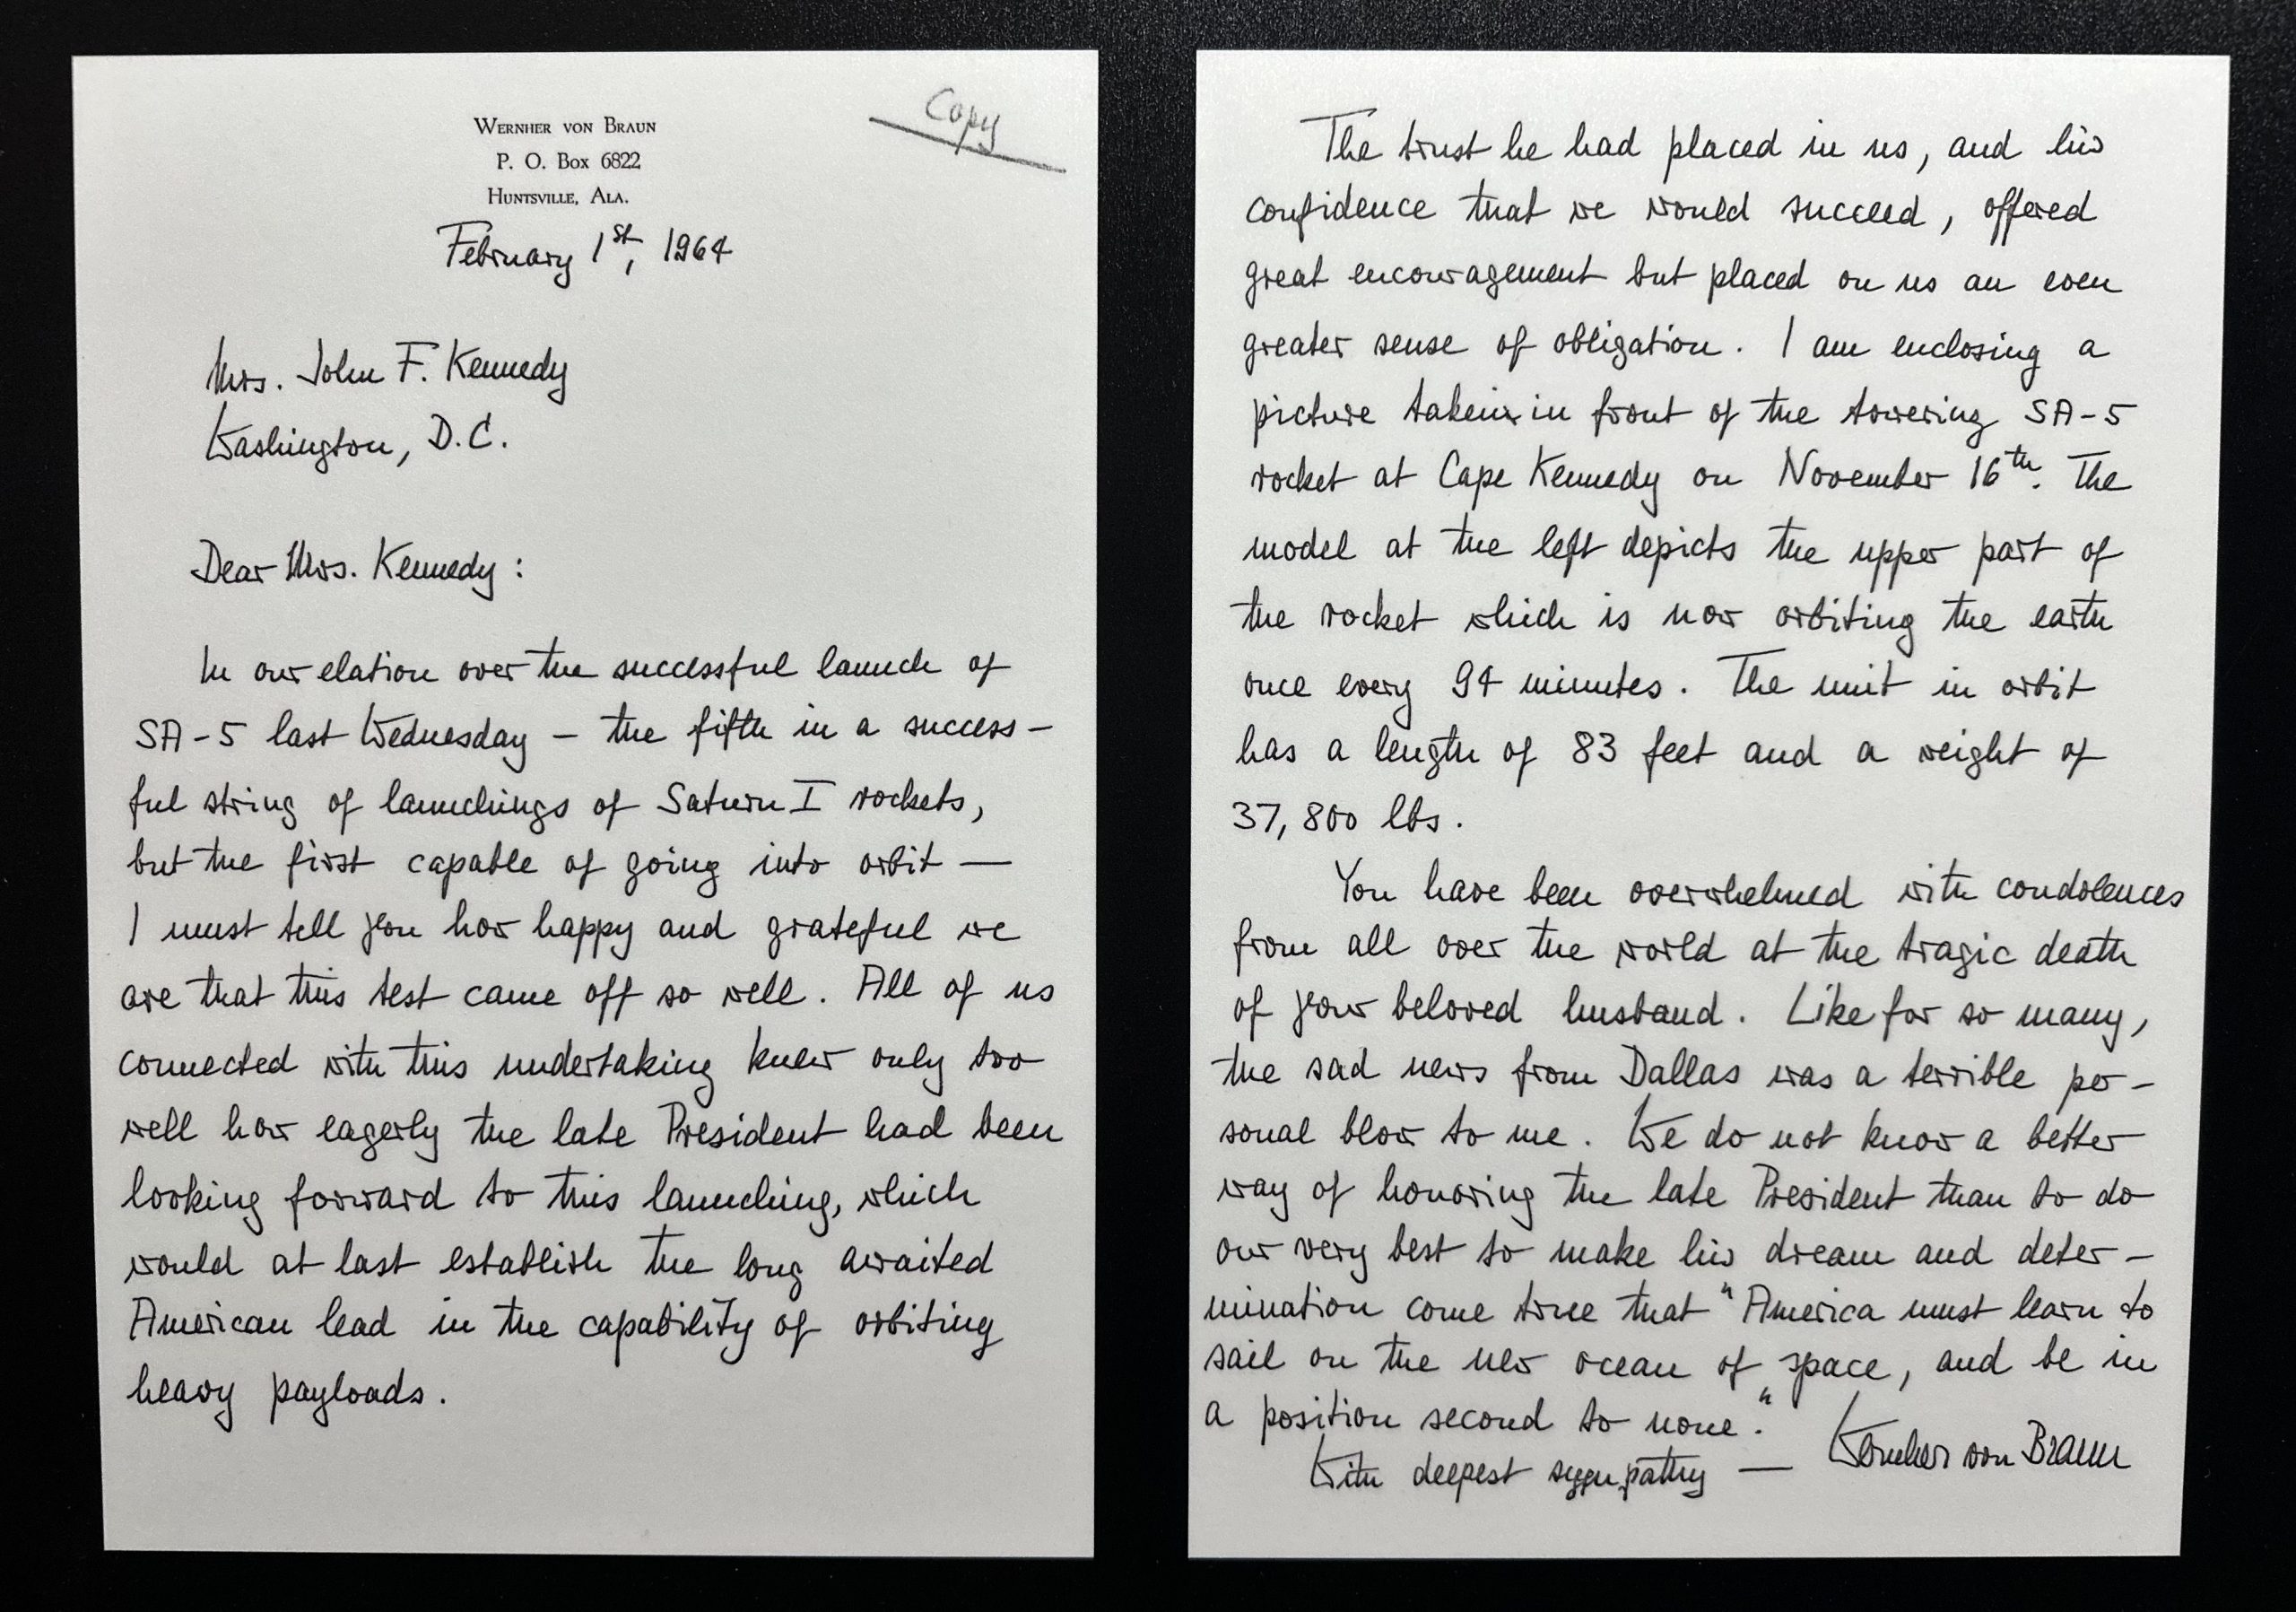 WERNHER VON BRAUN
P. O. Box 6822
HUNTSVILLE, ALA.
Copy
February 1st, 1964
Mrs. John F. Kennedy
Washington, D.C.
Dear Mrs. Kennedy:
In our elation over the successful launch of
SA-5 last Wednesday – the fifth in a success-
ful string of launchings of Saturn I rockets,
but the first capable of going into orbit —
I must tell you how happy and grateful we
are that this test came off so well. All of us
connected with this undertaking knew only too
well how eagerly the late President had been
looking forward to this launching, which
would at last establish the long awaited
American lead in the capability of orbiting
heavy payloads.
The trust he had placed in us, and his
confidence that we would succeed, offered
great encouragement but placed on us an even
greater sense of obligation. I am enclosing a
picture taken in front of the towering SA-5
rocket at Cape Kennedy on November 16th. The
model at the left depicts the upper part of
the rocket which is now orbiting the earth
once every 94 minutes. The unit in orbit
has a length of 83 feet and a weight of
37,800 lbs.
You have been overwhelmed with condolences
from all over the world at the tragic death
of your beloved husband. Like for so many,
the sad news from Dallas was a terrible per-
sonal blow to me. We do not know a better
way of honoring the late President than to do
our very best to make his dream and deter-
mination come true that "America must learn to
sail on the new ocean of space, and be in
a position second to none."
With deepest sympathy — Wernher von Braun